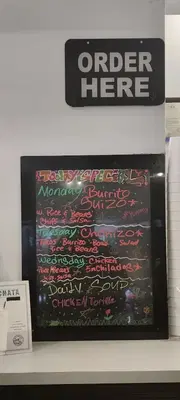 ORDER
HERE
Monday Burrito
Suizo
w. Rice & Beans
Chips & Salsa
Tuesday Chorizo
Tacos Burrito Bowl Salad
Rice & Beans
Wednesday Chicken
Enchiladas
Daily Soup
CHICKEN Tortilla